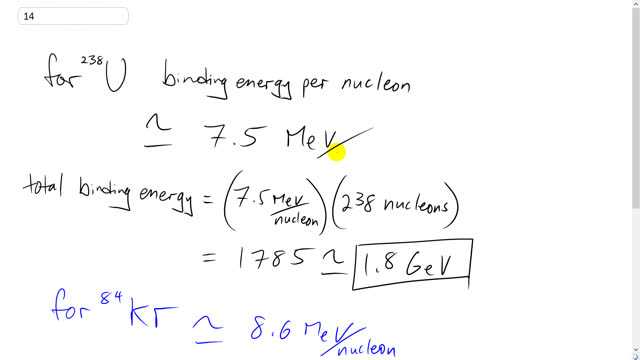 14
for ²³⁸U binding energy per nucleon
≃ 7.5 MeV/
total binding energy = (7.5 MeV/nucleon)(238 nucleons)
= 1785 ≃ 1.8 GeV
for ⁸⁴Kr ≃ 8.6 MeV/nucleon